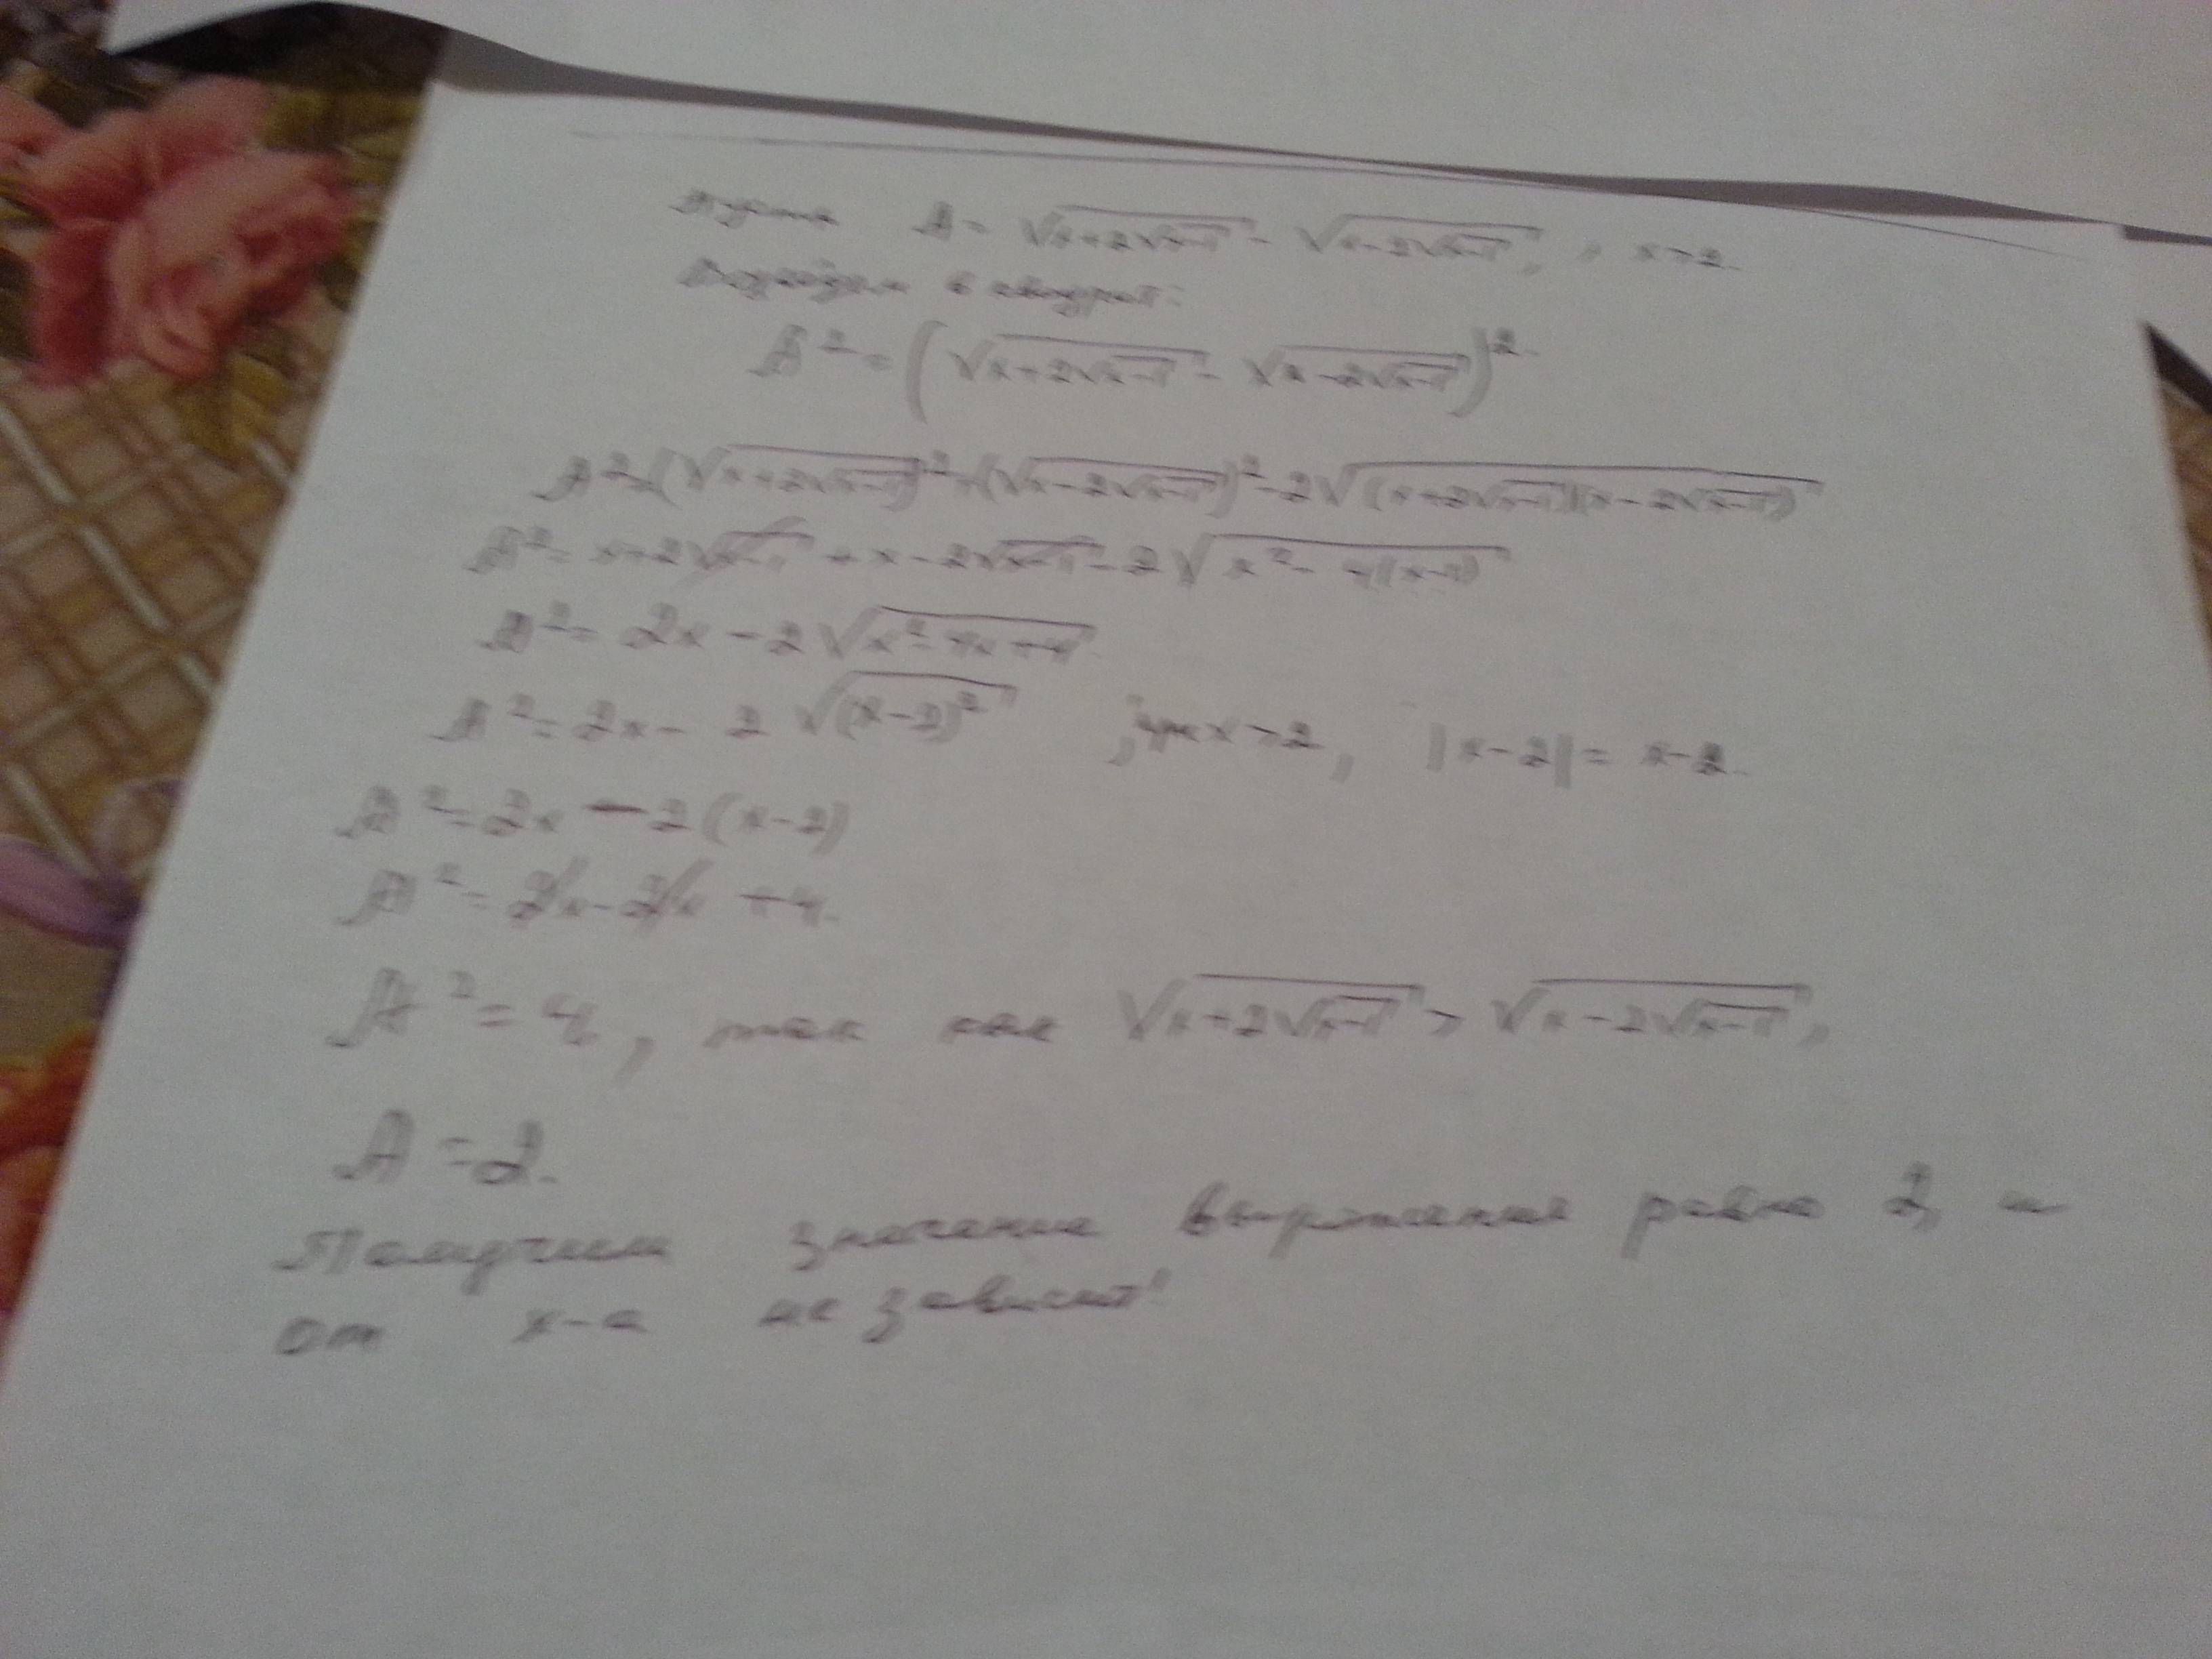 Пусть A = √(x+2√(x-1)) - √(x-2√(x-1)), x>2.
Возведём в квадрат:
A² = (√(x+2√(x-1)) - √(x-2√(x-1)))².
A² = (√(x+2√(x-1)))² + (√(x-2√(x-1)))² - 2√((x+2√(x-1))(x-2√(x-1)))
A² = x+2√(x-1) + x-2√(x-1) - 2√(x² - 4(x-1))
A² = 2x - 2√(x²-4x+4)
A² = 2x - 2√((x-2)²) , при x>2, |x-2| = x-2.
A² = 2x - 2(x-2)
A² = 2x-2x+4.
A² = 4, так как √(x+2√(x-1)) > √(x-2√(x-1)),
A = 2.
Получили значение выражения равно 2, и
от x-а не зависит!